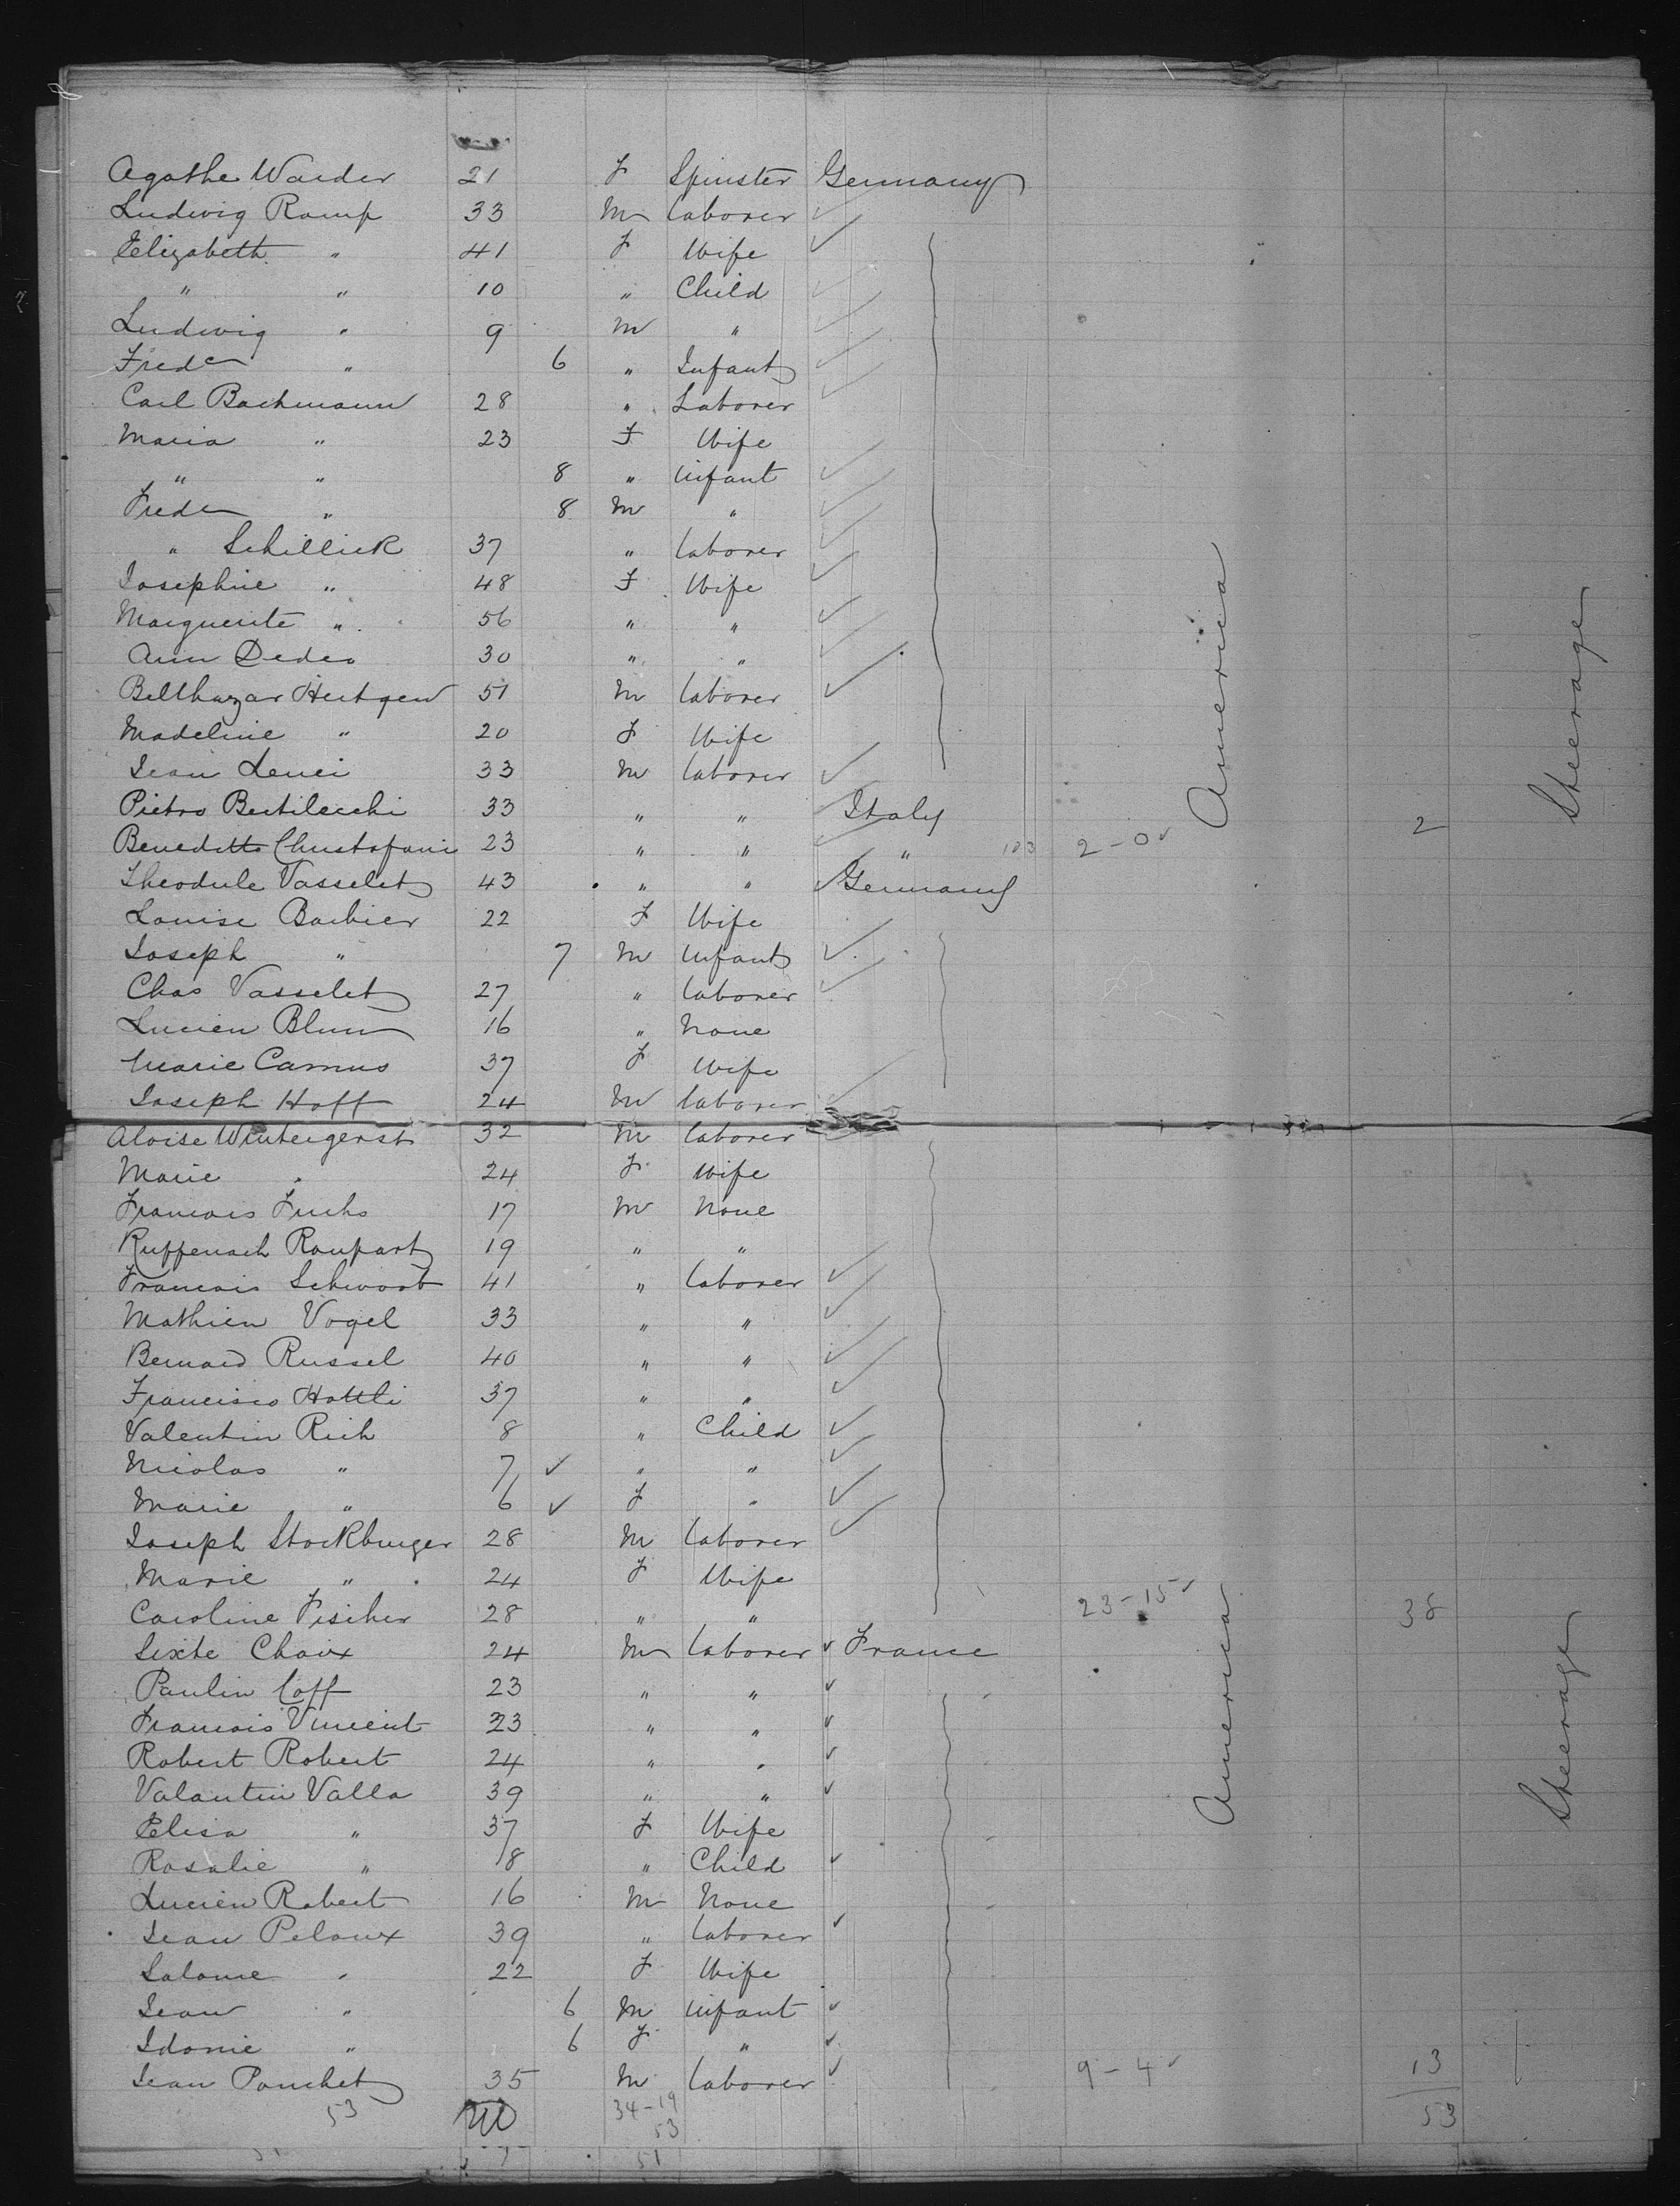 Agathe Warder 21 F Spinster Germany
Ludwig Ramp 33 M laborer
Elizabeth " 41 F Wife
" " 10 " Child
Ludwig " 9 M "
Fredc " 6 " Infant
Carl Bachmann 28 " Laborer
Maria " 23 F Wife
" " 8 " infant
Fredc " 8 M "
" Schillick 37 " laborer
Josephine " 48 F Wife
Marguerite " 56 " "
Ann Dedes 30 " "
Belthazar Hertgen 51 M laborer
Madeline " 20 F Wife
Jean Lenci 33 M laborer
Pietro Bertilecchi 33 " " Italy
Benedetto Christofani 23 " " " 103 2-0 2
Theodule Vasselet 43 " " Germany
Louise Barbier 22 F Wife
Joseph " 7 M infant
Chas Vasselet 27 " laborer
Lucien Blum 16 " None
Marie Camus 37 F Wife
Joseph Hoff 24 M laborer
America
Steerage
Aloise Wintergerst 32 M laborer
Marie " 24 F Wife
Francois Fuchs 17 M None
Ruffenach Roupart 19 " "
Francois Schwoob 41 " laborer
Mathieu Vogel 33 " "
Bernard Russel 40 " "
Francisco Hottli 37 " "
Valentin Rich 8 " Child
Nicolas " 7 " "
Marie " 6 F "
Joseph Stockburger 28 M laborer
Marie " 24 F Wife
Caroline Fischer 28 " " 23-15 38
Sixte Chaix 24 M laborer France
Paulin Coff 23 " "
Francois Vincent 23 " "
Robert Robert 24 " "
Valantin Valla 39 " "
Elisa " 37 F Wife
Rosalie " 8 " Child
Lucien Robert 16 M None
Jean Peloux 39 " laborer
Salome " 22 F Wife
Jean " 6 M infant
Idonie " 6 F "
Jean Ponchet 35 M laborer 9-4 13
America
Steerage
53 34-19 53
53
51